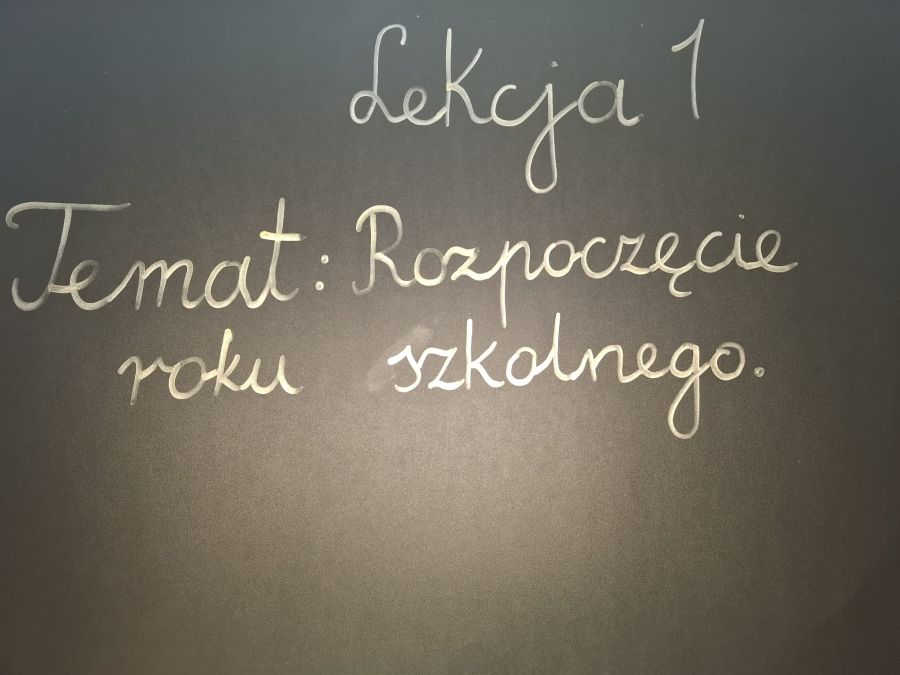 Lekcja 1
Temat: Rozpoczęcie
roku szkolnego.